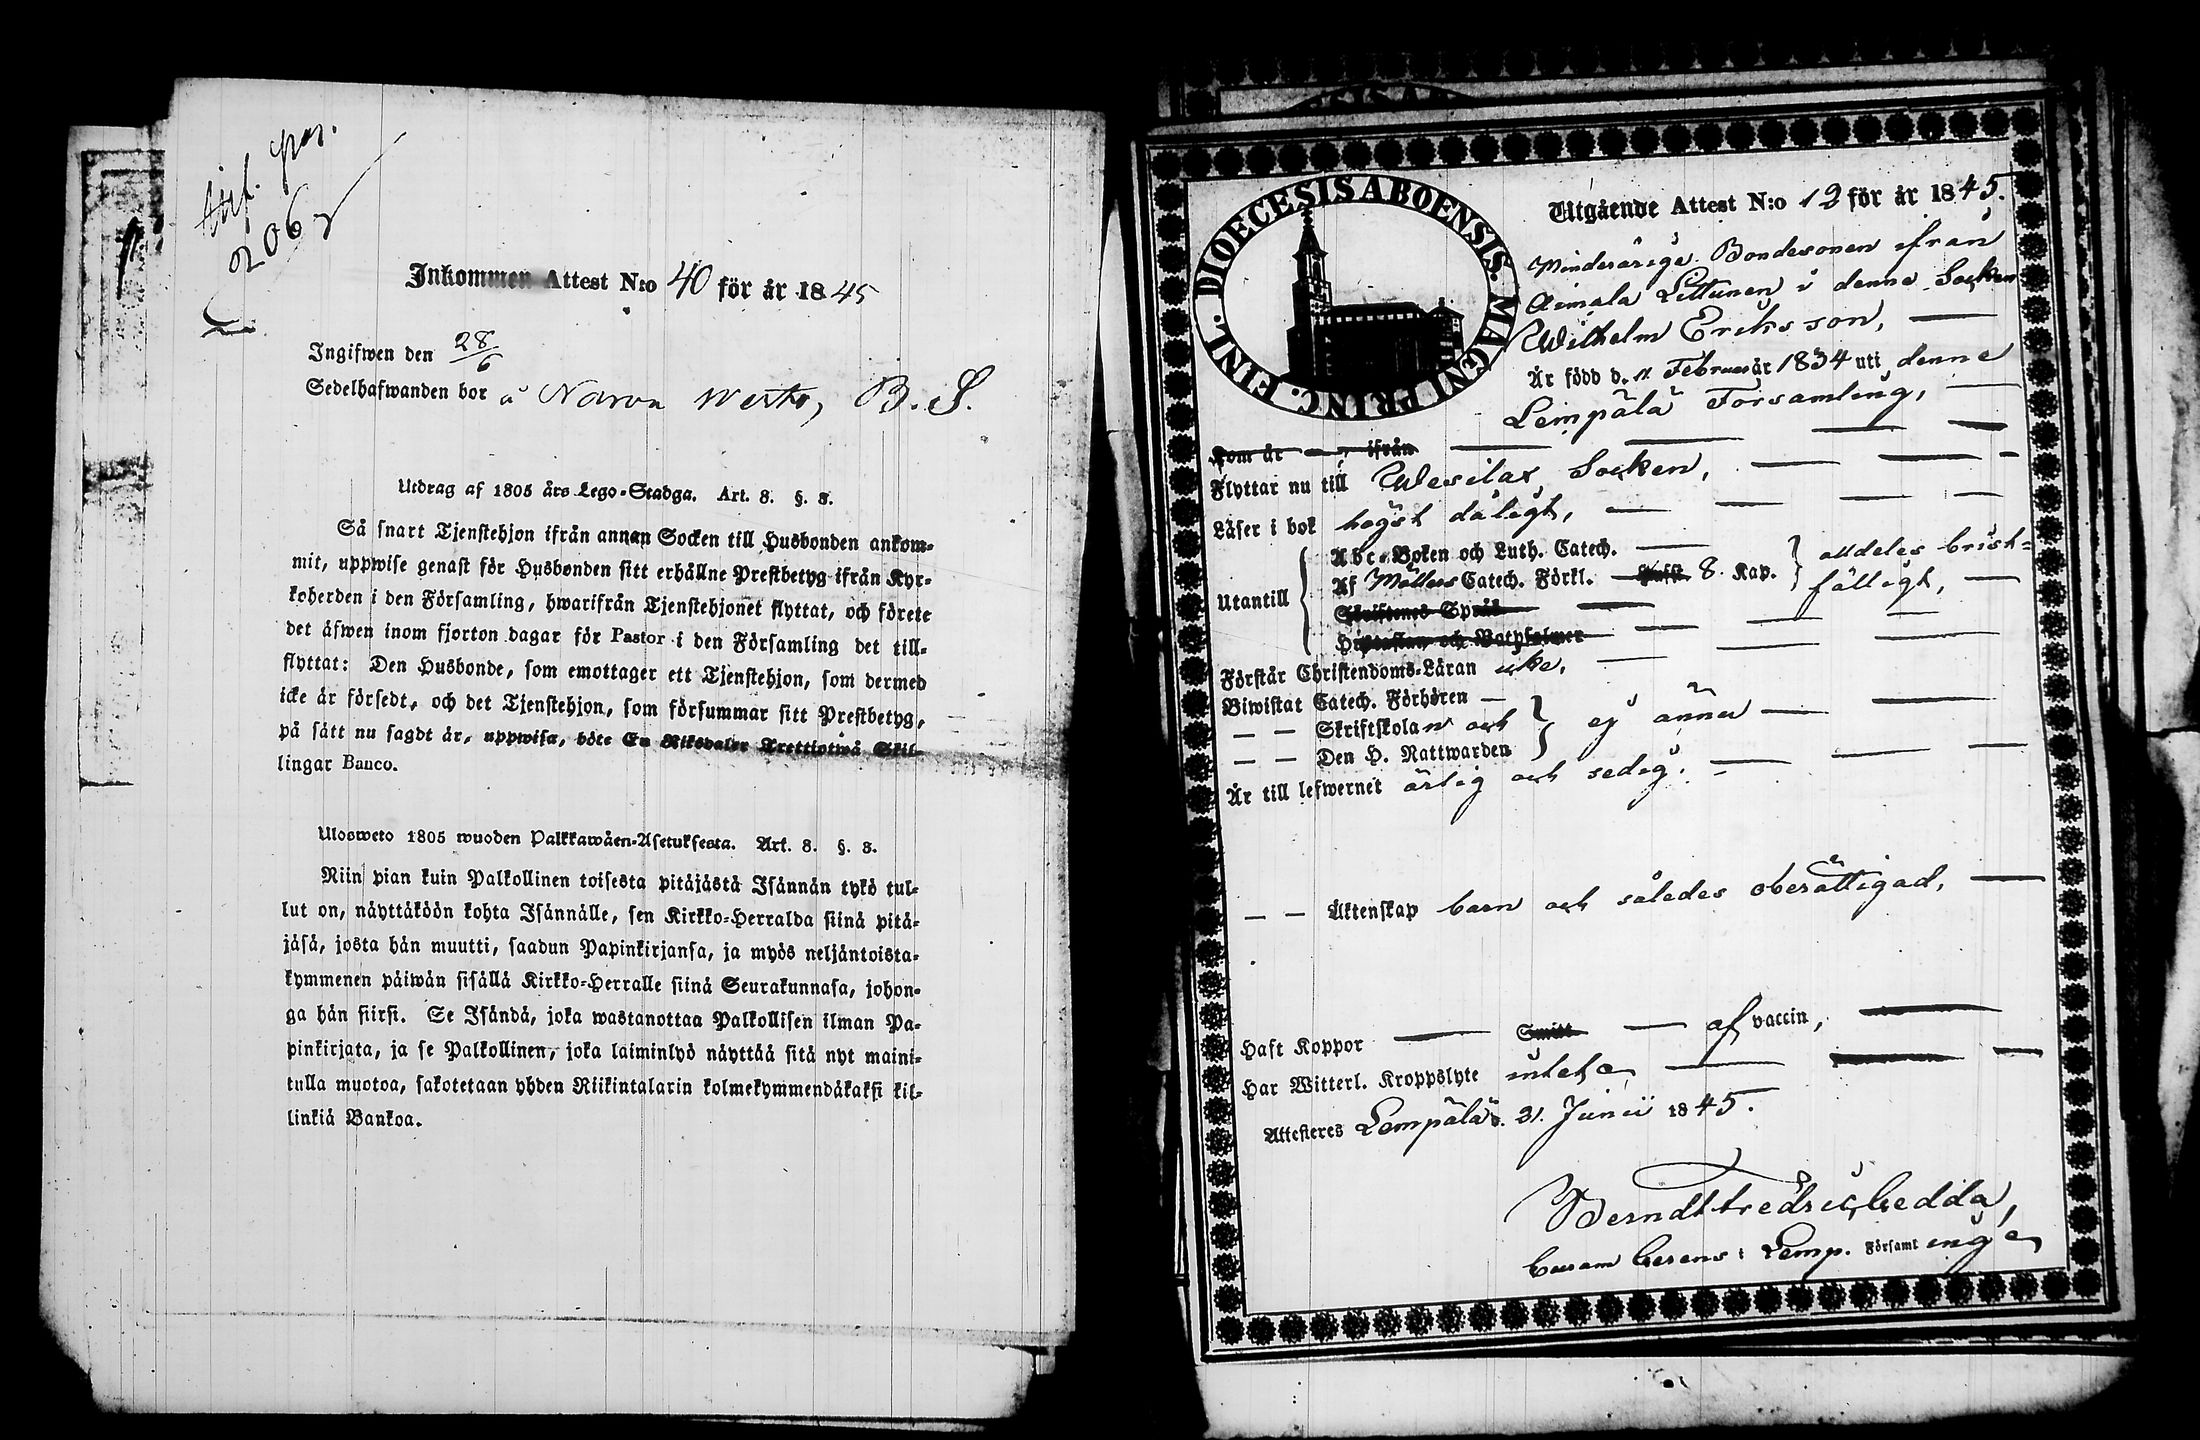 206
Inkommen Attest N:o 40 för år 1845
Ingifwen den 28/6
Sedelhafwanden bor å Narva Westo, B. S.
Utdrag af 1805 års Lego-Stadga. Art. 8. §. 8.
Så snart Tjenstehjon ifrån annan Socken till Husbonden ankom-
mit, uppwise genast för Husbonden sitt erhållne Prestbetyg ifrån Kyr-
koherden i den Församling, hwarifrån Tjenstehjonet flyttat, och förete
det äfwen inom fjorton dagar för Pastor i den Församling det till-
flyttat: Den Husbonde, som emottager ett Tjenstehjon, som dermed
icke är försedt, och det Tjenstehjon, som försummar sitt Prestbetyg,
på sätt nu sagdt är, uppwisa, böte En Riksdaler Trettiotwå Skil-
lingar Banco.
Ulosweto 1805 wuoden Palkkawäen-Asetuksesta. Art. 8. §. 8.
Niin pian kuin Palkollinen toisesta pitäjästä Isännän tykö tul-
lut on, näyttäköön kohta Isännälle, sen Kirkko-Herralda siinä pitä-
jäsä, josta hän muutti, saadun Papinkirjansa, ja myös neljäntoista-
kymmenen päiwän sisällä Kirkko-Herralle siinä Seurakunnasa, johon-
ga hän siirsi. Se Isändä, joka wastanottaa Palkollisen ilman Pa-
pinkirjata, ja se Palkollinen, joka laiminlyö näyttää sitä nyt maini-
tulla muotoa, sakotetaan yhden Riikintalarin kolmekymmendäkaksi kil-
linkiä Bankoa.
DIOECESIS ABOENSIS. MAGNI PRINC. FINL.
Utgående Attest N:o 12 för år 1845.
Minderårige Bondesonen ifrån
Aimala Littunen i denne Socken
Wilhelm Eriksson,
Är född d. 11 Februar år 1834 uti denne
Lempälä Församling,
kom år ifrån
Flyttar nu till Wesilax Socken,
Läser i bok högst dåligt,
Utantill
Abc-Boken och Luth. Catech.
Af Möllers Catech. Förkl. 8. Kap. alldeles brist-
fälligt,
Skriftenes Språk
Hustaflan och Botpsalmer
Förstår Christendoms-Läran icke,
Biwistat Catech. Förhören
— — Skriftskolan och ej ännu
— — Den H. Nattwarden
Är till lefwernet ärlig och sedig.
— — Äktenskap barn och således oberättigad,
Haft Koppor Smitt af vaccin,
Har Witterl. Kroppslyte intet
Attesteres Lempälä d. 21. Junii 1845.
Berndt Fredric Gedda,
Curam Gerens i Lemp. Församling